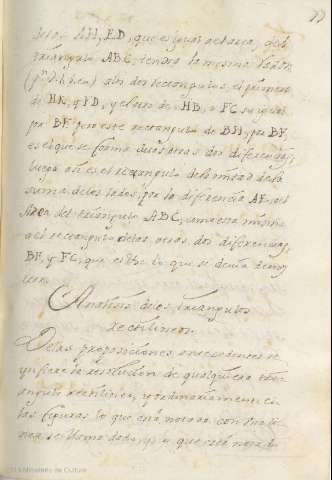 77
de los AH, ED, que es igual al area, del
triangulo ABC, tendra la misma razon
alos dos rectangulos, el primero
de HK, y FD, y el otro de HB, o FC su igual
por BF. pero este rectangulo de BH, por BF.
es el que se forma de las otras dos diferencias,
luego asi es el rectangulo de la mitad de la
suma de los lados, por la diferencia AF, al
Area del triangulo ABC, como esta misma
al rectangulo de las otras dos diferencias,
BF, y FC, que es lo que se devia demos
trar.
Analisis de los triangulos
Rectilineos.
De las proposiciones antecedentes se
infiere la resolucion de qualquiera tri
angulo rectilineo, y ordinariamente en
las figuras lo que está notado con una li
nea se llama dado, y lo que está notado
Ministerio de Cultura